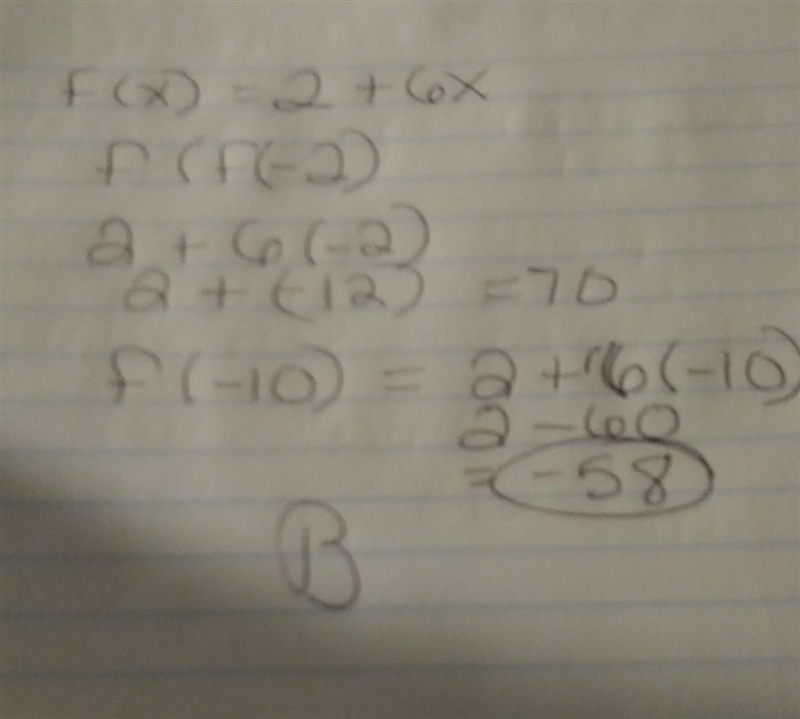 F(x) = 2 + 6x
f(f(-2)
2 + 6(-2)
2 + (-12) = 70
f(-10) = 2 + 6(-10)
2 - 60
= -58
B